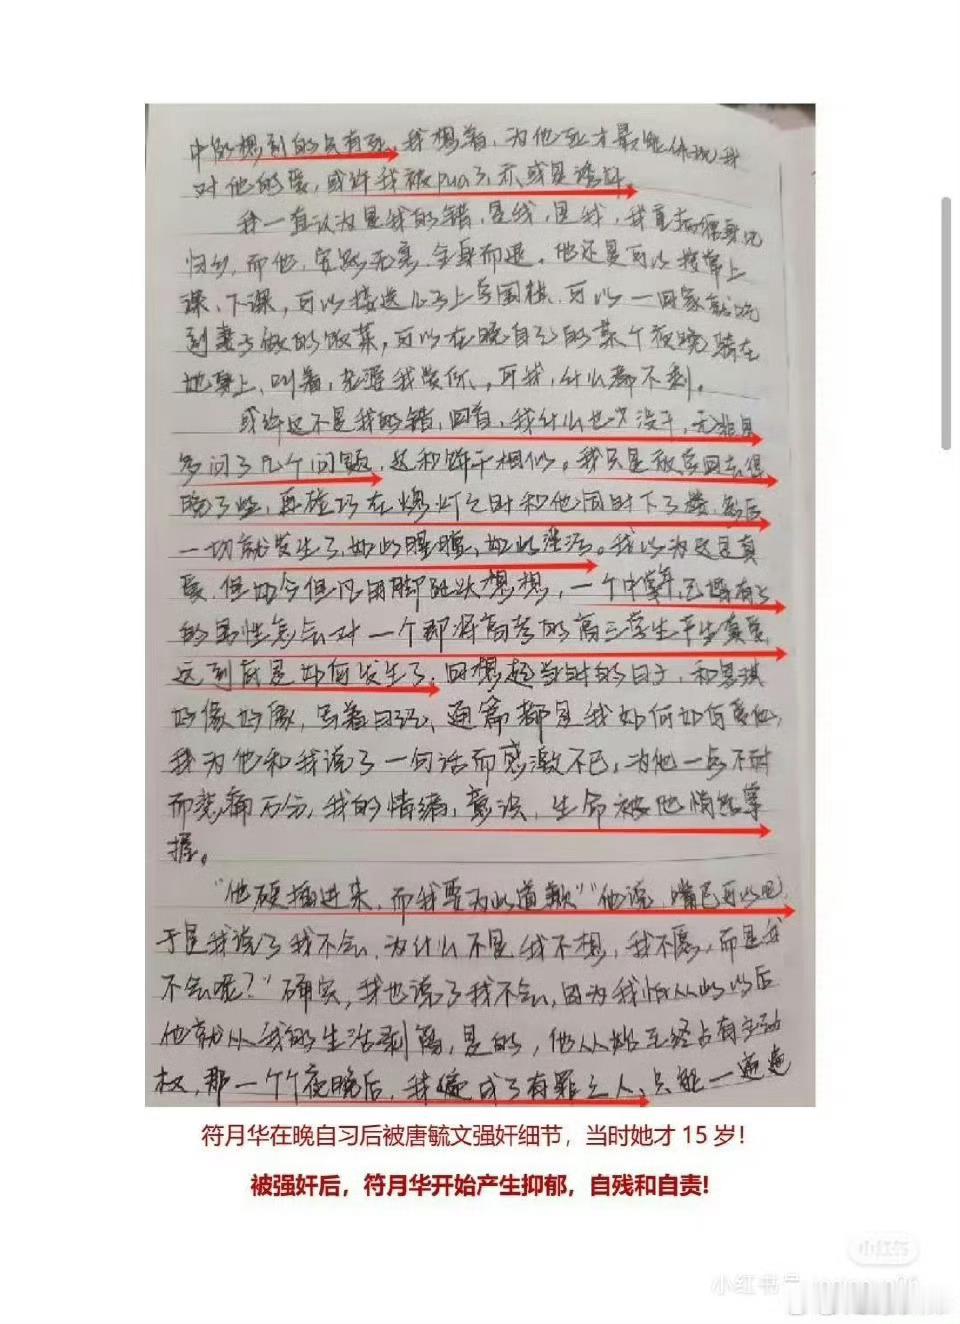 中能想到的只有死，我想着，为他死才最能体现我
对他的爱，或许我被pua了，亦或是诱奸。
我一直认为是我的错，是我，是我，我
归乡，而他，安然无恙，全身而退。他还是可以接常上
课、下课，可以接送儿子上学围棋，可以一回家就吃
到妻子做的饭菜，可以在晚自习的某个夜晚骑在
她身上、叫着，
可我，什么都不剩。
或许这不是我的错，回首，我什么也没干，无非是
多问了几个问题，
我只是放学回去得
晚了些，再碰巧在熄灯之时和他同时下了楼，然后
一切就发生了，如此
我以为这是真
爱，但如今但凡用脚趾头想想，一个中年，已婚有子
的男性怎么会对一个即将高考的高三学生产生真爱
这到底是如何发生了。回想起当时的日子，和思琪
好像好像，写着日记，通篇都是我如何如何爱他，
我为他和我说了一句话而感激不已，为他一点不耐
而悲痛万分，我的情绪，意法，生命被他悄然掌
握。
“他硬插进来，而我要为此道歉”“他说，嘴巴可以吧，
于是我说了我不会，为什么不是我不想，我不愿，而是我
不会呢？”确实，我也说了我不会，因为我怕从此以后
他就从我的生活剥离，是的，他从始至终占有主动
权，那一个个夜晚后，我变成了有罪之人，只能一遍遍
符月华在晚自习后被唐毓文强奸细节，当时她才 15 岁！
被强奸后，符月华开始产生抑郁，自残和自责!
小红书
小红书号